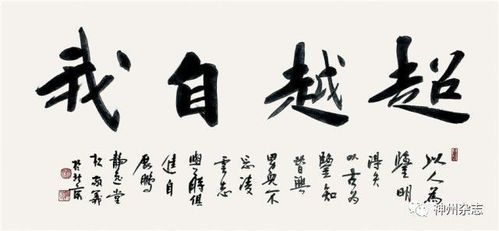 超越自我
以人為
鑒明
得失
以古为
鑒知
替興
男兒不
忘凌
雲志
與時俱
進自
展鵬
静逸堂
神州杂志